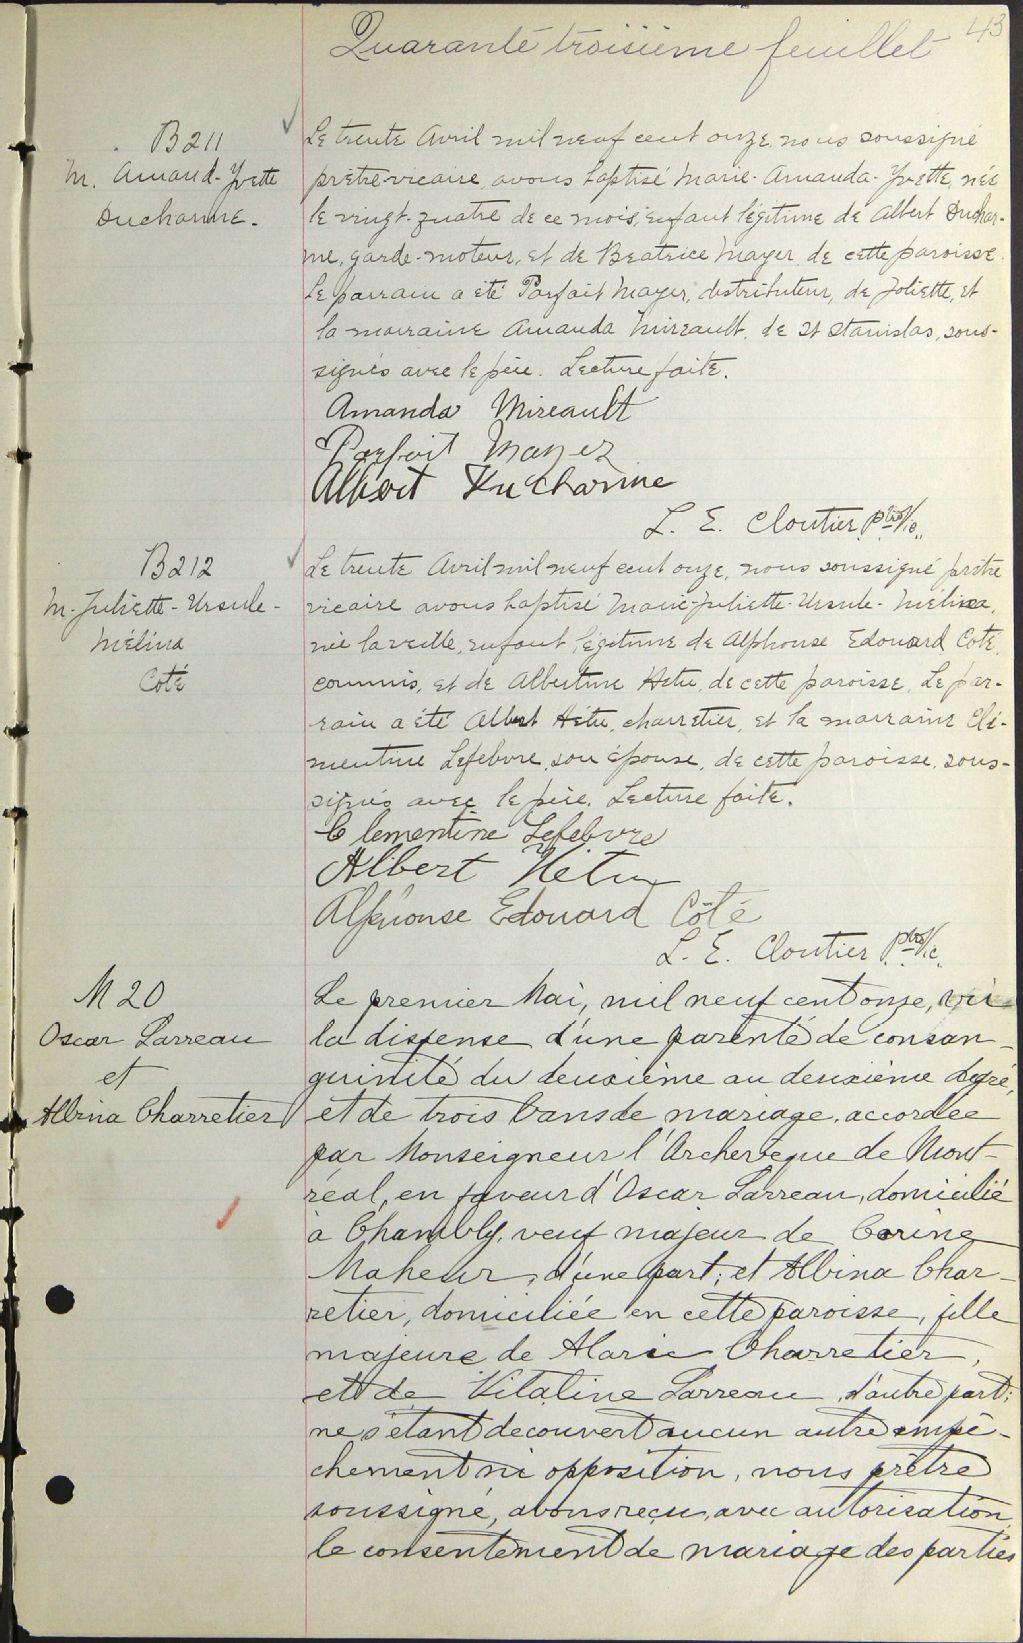 43
Quarante troisième feuillet
B211
M. Amand-Yvette
Ducharme.
Le trente Avril mil neuf cent onze, nous soussigné
prêtre vicaire, avons baptisé Marie-Amanda-Yvette, née
le vingt-quatre de ce mois, enfant légitime de Albert Duchar-
me, garde-moteur, et de Beatrice Mayer, de cette paroisse.
Le parrain a été Parfait Mayer, distributeur, de Joliette, et
la marraine Amanda Mireault, de St Stanislas, sous-
signés avec le père. Lecture faite.
Amanda Mireault
Parfait Mayer
Albert Ducharme
L. E. Cloutier Ptre Vic.
B212
M-Juliette-Ursule-
Mélina
Coté
Le trente Avril mil neuf cent onze, nous soussigné prêtre
vicaire avons baptisé Marie-Juliette-Ursule-Mélina,
née la veille, enfant légitime de Alphonse Edouard Coté,
commis, et de Albertine Hetu, de cette paroisse. Le par-
rain a été Albert Hétu, charretier, et la marraine Clé-
mentine Lefebvre, son épouse, de cette paroisse, sous-
signés avec le père. Lecture faite.
Clementine Lefebvre
Albert Hétu
Alphonse Edouard Côté
L. E. Cloutier Ptre Vic.
M 20
Oscar Larreau
et
Albina Charretier
Le premier Mai, mil neuf cent onze, vu
la dispense d'une parenté de consan-
guinité du deuxième au deuxième degré,
et de trois bans de mariage, accordée
par Monseigneur l'Archevêque de Mont-
réal, en faveur d'Oscar Larreau, domicilié
à Chambly, veuf majeur de Corine
Maheur, d'une part; et Albina Char-
retier, domiciliée en cette paroisse, fille
majeure de Alarie Charretier,
et de Vitaline Larreau, d'autre part;
ne s'étant decouvert aucun autre empê-
chement ni opposition, nous prêtre
soussigné, avons reçu, avec autorisation,
le consentement de mariage des parties